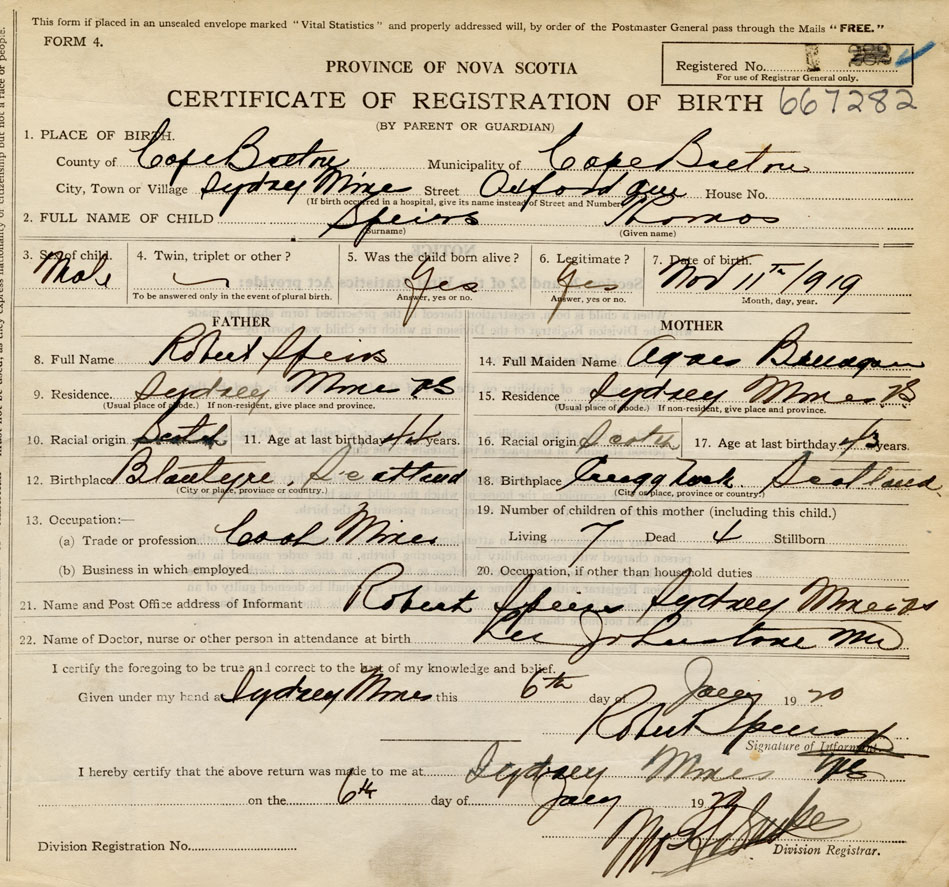 This form if placed in an unsealed envelope marked "Vital Statistics" and properly addressed will, by order of the Postmaster General pass through the Mails "FREE."
FORM 4.
Registered No.
For use of Registrar General only.
PROVINCE OF NOVA SCOTIA
CERTIFICATE OF REGISTRATION OF BIRTH 667282
(BY PARENT OR GUARDIAN)
1. PLACE OF BIRTH.
County of Cape Breton Municipality of Cape Breton
City, Town or Village Sydney Mines Street Oxford ave House No.
(If birth occurred in a hospital, give its name instead of Street and Number)
2. FULL NAME OF CHILD Speirs Thomas
(Surname) (Given name)
3. Sex of child. Male 4. Twin, triplet or other? 5. Was the child born alive? Yes 6. Legitimate? Yes 7. Date of birth. Nov 11th/1919
To be answered only in the event of plural birth. Answer, yes or no. Answer, yes or no. Month, day, year.
FATHER
8. Full Name Robert Speirs
9. Residence. Sydney Mines NS
(Usual place of abode.) If non-resident, give place and province.
10. Racial origin Scotch 11. Age at last birthday 44 years.
12. Birthplace Blantyre, Scotland
(City or place, province or country.)
13. Occupation:—
(a) Trade or profession Coal Miner
(b) Business in which employed
MOTHER
14. Full Maiden Name Agnes
15. Residence Sydney Mines NS
(Usual place of abode.) If non-resident, give place and province.
16. Racial origin Scotch 17. Age at last birthday 43 years.
18. Birthplace Scotland
(City or place, province or country.)
19. Number of children of this mother (including this child.)
Living 7 Dead 4 Stillborn
20. Occupation, if other than household duties
21. Name and Post Office address of Informant Robert Speirs Sydney Mines NS
22. Name of Doctor, nurse or other person in attendance at birth Johnstone MD
I certify the foregoing to be true and correct to the best of my knowledge and belief.
Given under my hand at Sydney Mines this 6th day of Jany 1920
Robert Speirs
Signature of Informant.
I hereby certify that the above return was made to me at Sydney Mines NS
on the 6th day of Jany 1920
Division Registration No. Division Registrar.